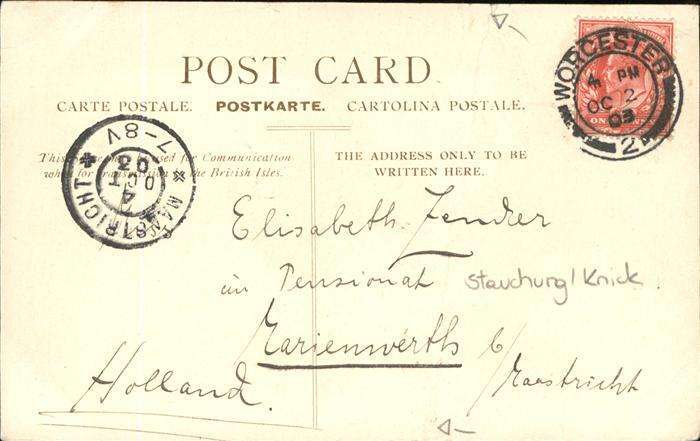 POST CARD.
CARTE POSTALE. POSTKARTE. CARTOLINA POSTALE.
This space may be used for Communication
when for transmission in the British Isles.
THE ADDRESS ONLY TO BE
WRITTEN HERE.
WORCESTER
4 PM
OC 2
03
2
MAASTRICHT
7-8V
4
OCT
03
Elisabeth
im Pensionat
Stauchung/Knick
Marienwerth b/
Maastricht
Holland.